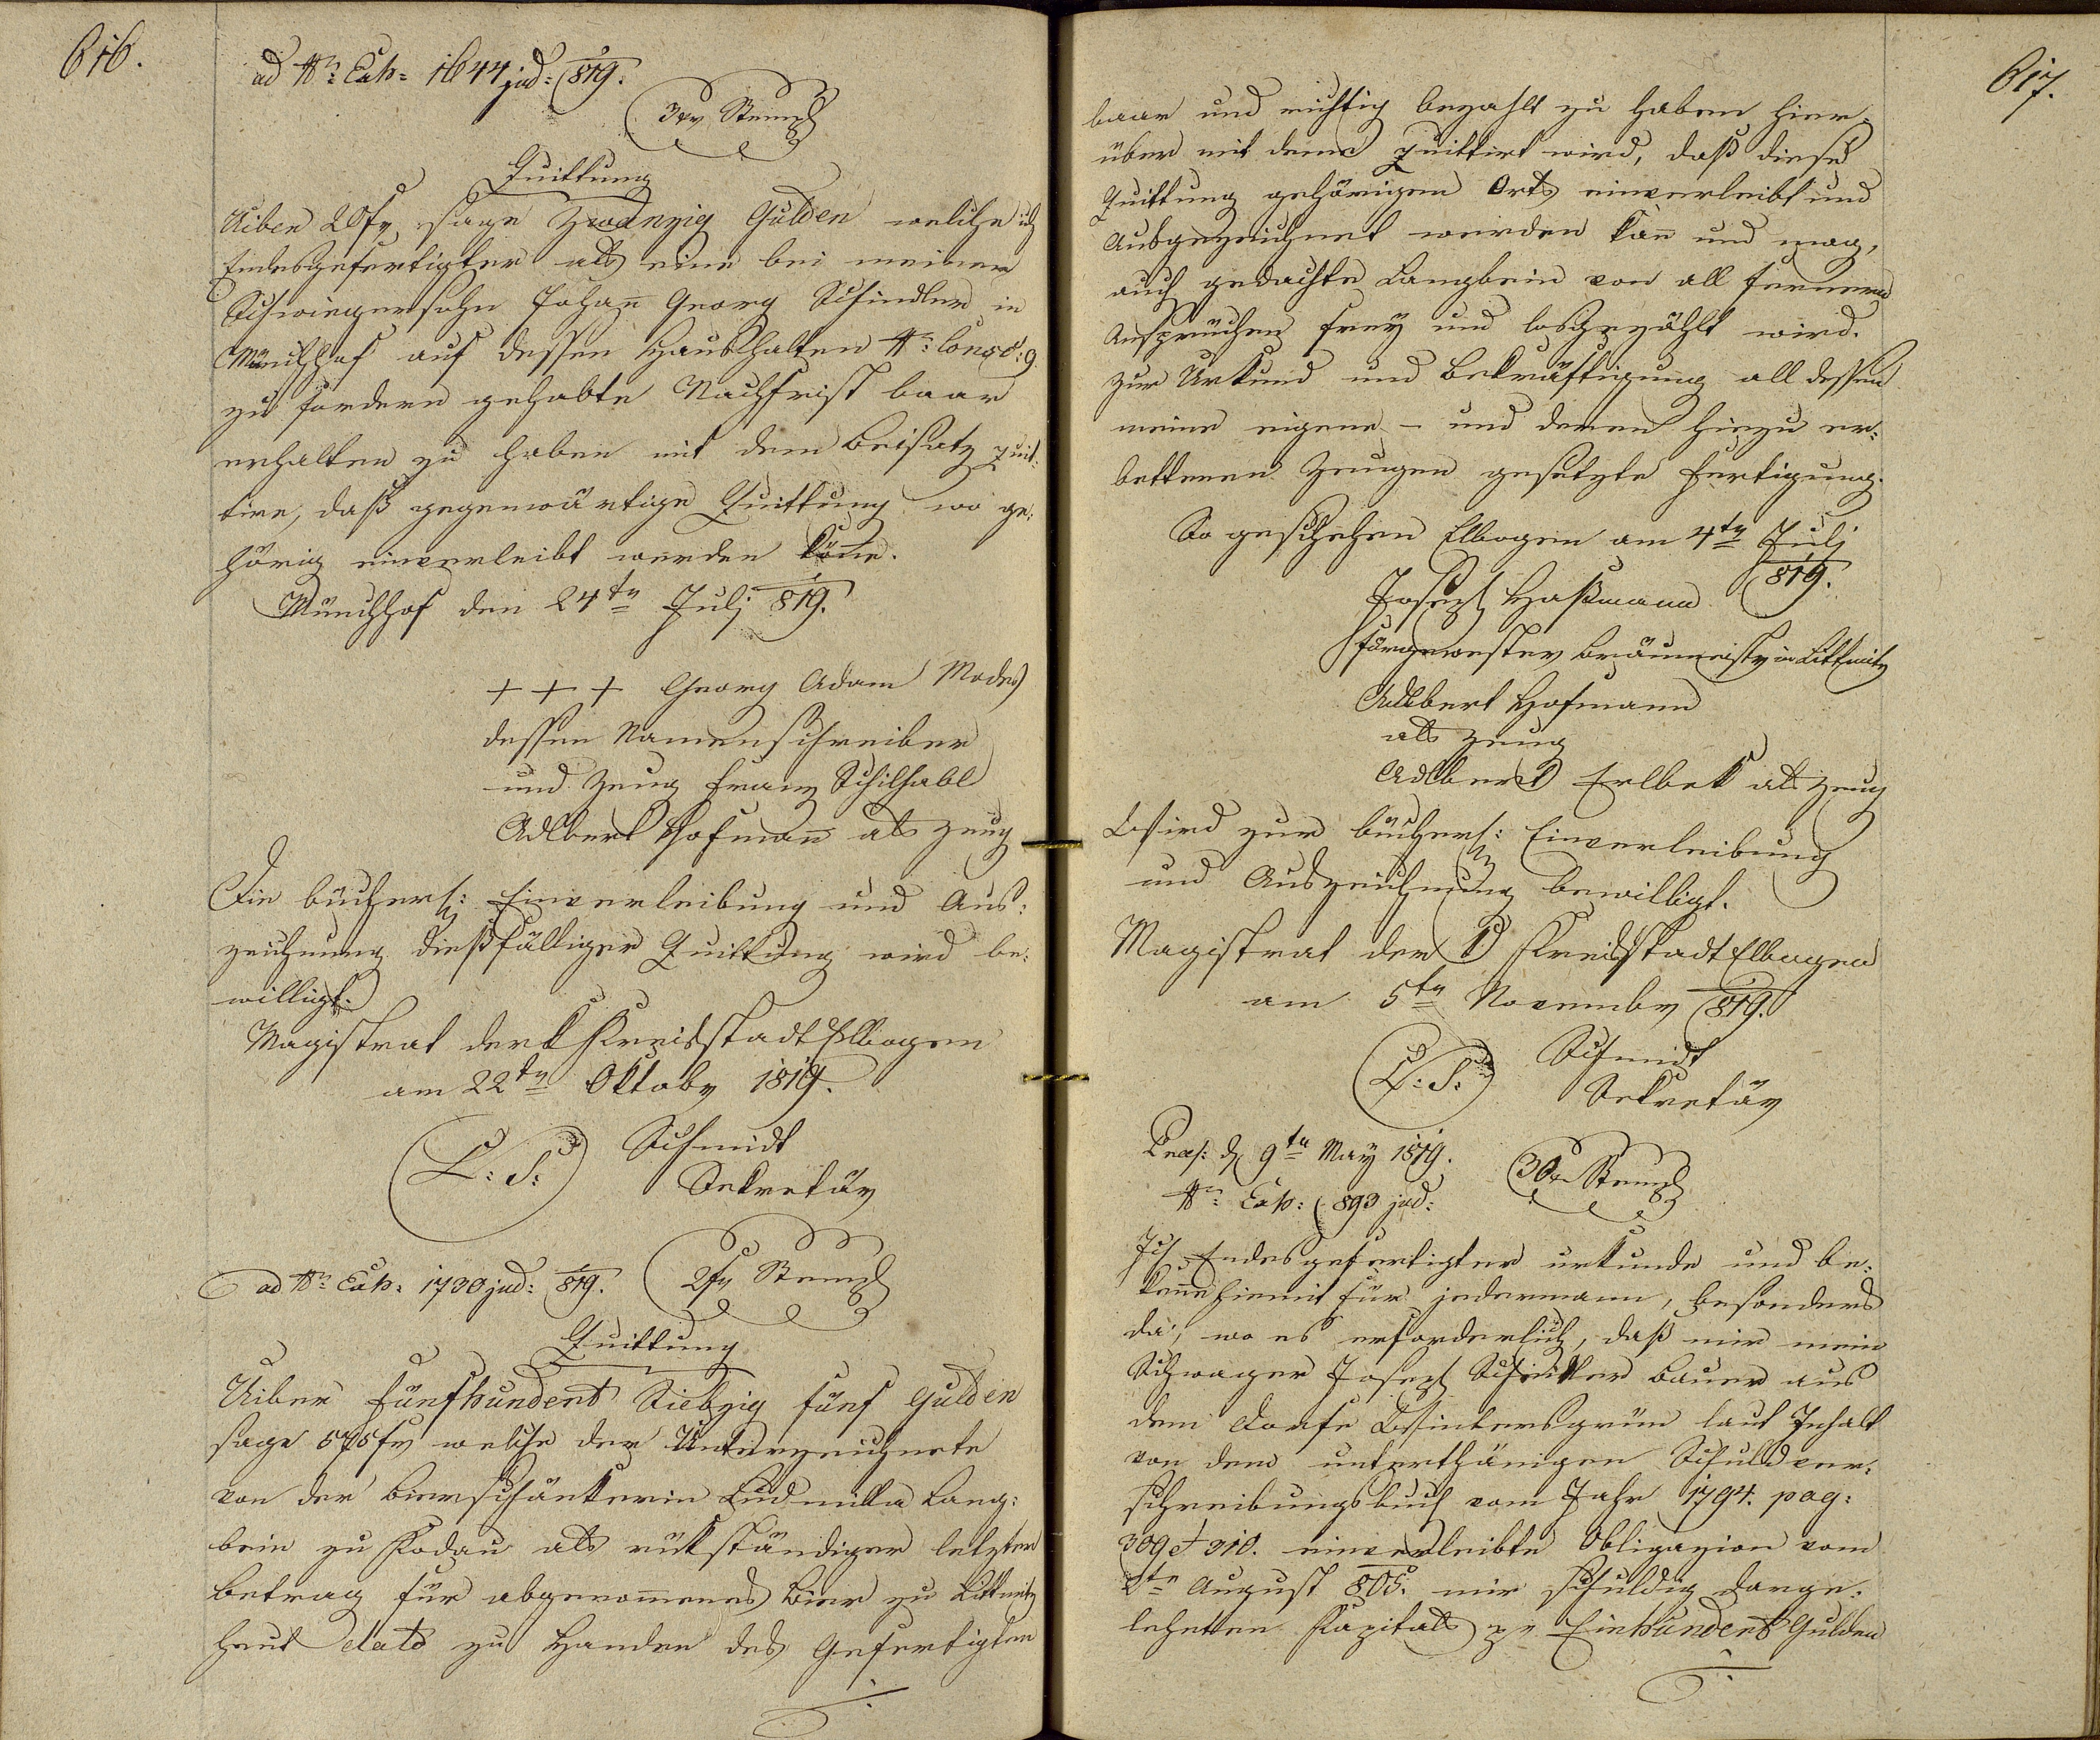 616.
ad Nr: Exh: 1644 jud: 819.
3xr Stempl
Quittung
Uiber 20 fr, sage Zwanzig Gulden welche ich
Endesgefertigter als eine bei meinem
Schwiegersohn Johan̄ Georg Schindler in
Münchhof auf dessen Haushalten Nr: Consc: 9
zu fordern gehabte Nachfrist baar
erhalten zu haben mit dem Beisatz quit:
tire, daß gegenwärtige Quittung wo ge:
hörig einverleibt werden kön̄e.
Münchhof den 24tn Julj 819.
+ + + Georg Adam Moder
dessen Namenschreiber
und Zeug Franz Schilhabl
Adlbert Hofman̄ als Zeug
Die bücherl: Einverleibung und Aus:
zeichnung dießfälliger Quittung wird be:
willigt.
Magistrat der k Kreisstadt Elbogen
am 22tn Oktobr 1819.
L: S: Schmidt
Sekretär
ad Nr: Exh: 1730 jud: 819. 2fr Stempl
Quittung
Uiber fünfhundert Siebzig fünf Gulden
sage 575 fr welche der Unterzeichnete
von der Bierschänkerin Ludmilla Lang:
bein zu Kodau als rükständiger letzter
Betrag für abgenom̄enes Bier zu Littmitz
heut dato zu Handen des Gefertigten
617.
baar und richtig bezahlt zu haben hier:
über mit deme quittirt wird, daß diese
Quittung gehörigen Orts einverleibt und
Ausgezeichnet werden kan̄ und mag,
auch gedachte Langbein von all fernern
Ansprüchen frey und losgezählt wird.
Zur Urkund und Bekräftigung all dessen
meine eigene – und deren hiezu er:
bettenen Zeugen gesetzte Fertigung.
So geschehen Elbogen am 4tn Julj
819.
Joseph Haßmann
fürgewester Bräumeistr in Littmitz
Adlbert Hofmann
als Zeug
Adlbert Erlbek als Zeug
Wird zur bücherl: Einverleibung
und Auszeichnung bewilligt.
Magistrat der k Kreisstadt Elbogen
am 5tn Novembr 819.
L: S: Schmidt
Sekretär
Praes: d 9tn May 1819.
Nr: Exh: 893 jud: 30xr Stempl
Ich Endesgefertigter urkunde und be:
ken̄e hiemit für jedermann, besonders
da, wo es erforderlich, daß mir mein
Schwager Joseph Bauer aus
dem Dorfe Wintersgrün laut Inhalt
von dem unterthänigen Schuldver:
schreibungsbuch vom Jahr 1794. pag:
309 et 310. einverleibte Obligazion vom
August 805. mir schuldig darge:
lehnten Kapitals pr Einhundert Gulden